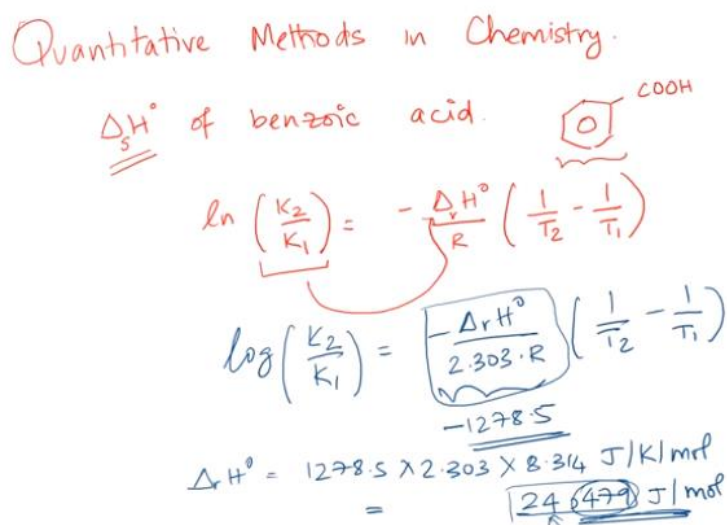 Quantitative Methods in Chemistry.
ΔsH° of benzoic acid. COOH
ln (K2/K1) = - ΔrH°/R (1/T2 - 1/T1)
log (K2/K1) = -ΔrH°/2.303·R (1/T2 - 1/T1)
-1278.5
ΔrH° = 1278.5 × 2.303 × 8.314 J/K/mol
= 24,479 J/mol